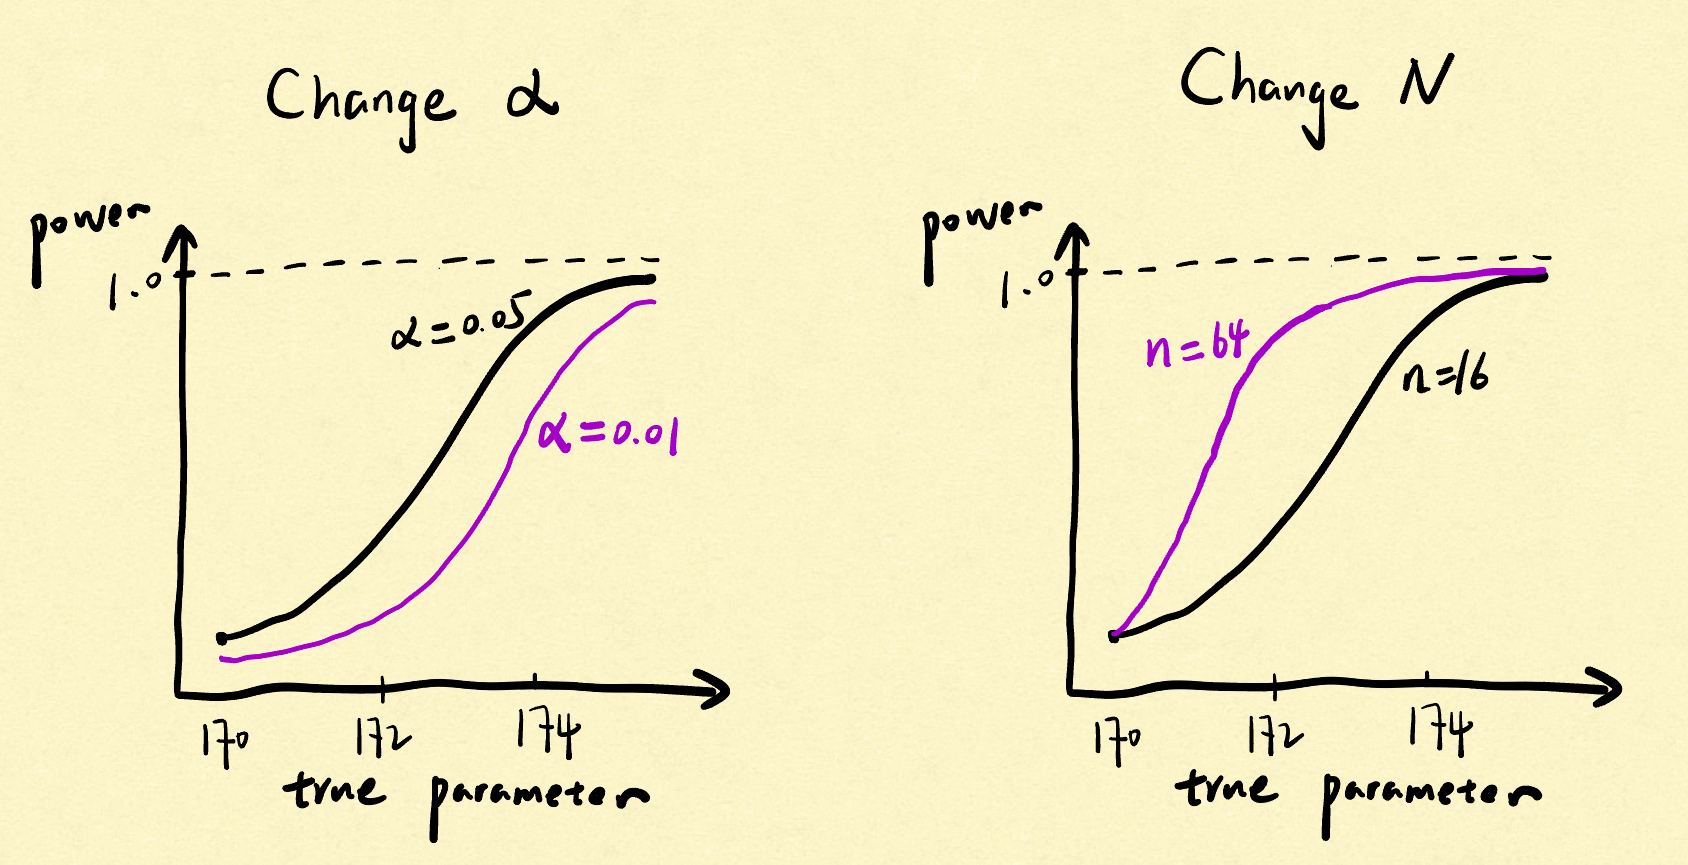 Change α
power
1.0
α=0.05
α=0.01
170 172 174
true parameter
Change N
power
1.0
n=64
n=16
170 172 174
true parameter